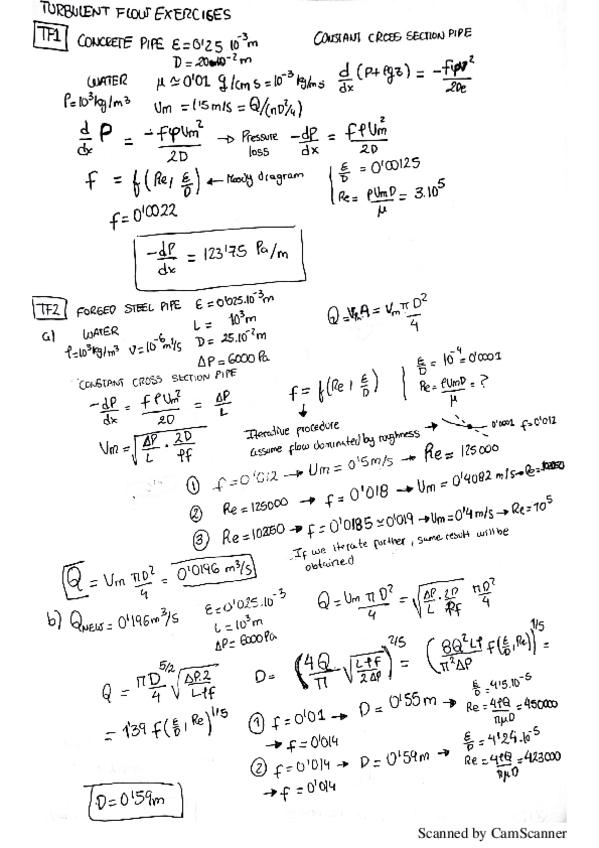 TURBULENT FLOW EXERCISES
TF1 CONCRETE PIPE ε=0'25 10^-3 m CONSTANT CROSS SECTION PIPE
D = 20·10^-2 m
WATER μ ≃ 0'01 g/cm s = 10^-3 kg/m s d/dx (P+ρgz) = -fρv²/2D
ρ=10³kg/m³ Um = 1'5 m/s = Q/(πD²/4)
d/dx P = -fρUm²/2D → Pressure loss -dP/dx = fρUm²/2D
f = f(Re, ε/D) ← Moody diagram
ε/D = 0'00125
Re = ρUmD/μ = 3·10⁵
f=0'0022
-dP/dx = 123'75 Pa/m
TF2 FORGED STEEL PIPE ε=0'025·10^-3 m
a) WATER L = 10³m Q=VmA = Vm π D²/4
ρ=10³kg/m³ ν=10^-6 m²/s D = 25·10^-2 m
ΔP=6000 Pa
CONSTANT CROSS SECTION PIPE
-dP/dx = fρUm²/2D = ΔP/L
f = f(Re, ε/D)
ε/D = 10^-4 = 0'0001
Re = ρUmD/μ = ?
Um = √(ΔP/L · 2D/ρf)
Iterative procedure
assume flow dominated by roughness → 0'0001 f=0'012
① f=0'012 → Um = 0'5m/s → Re= 125000
② Re = 125000 → f = 0'018 → Um = 0'4082 m/s → Re=
③ Re=10250 → f = 0'0185 ≃ 0'019 → Um=0'4 m/s → Re=10⁵
If we iterate further, same result will be
obtained
Q = Um πD²/4 = 0'0196 m³/s
b) QNEW = 0'196m³/s ε=0'025·10^-3 Q=Um πD²/4 = √(ΔP/L · 2D/ρf) πD²/4
L=10³m
ΔP=6000Pa
Q = πD^5/2/4 √(ΔP·2/Lρf) D= (4Q/π √(Lρf/2ΔP))^2/5 = (8Q²Lρ/π²ΔP f(ε/D, Re))^1/5 =
= 1'39 f(ε/D, Re)^1/5
① f=0'01 → D = 0'55m → ε/D = 4'5·10^-5
Re = 4ρQ/πμD = 450000
→ f=0'014
② f=0'014 → D=0'59m → ε/D = 4'24·10^-5
Re = 4ρQ/πμD = 423000
→ f=0'014
D=0'59m
Scanned by CamScanner